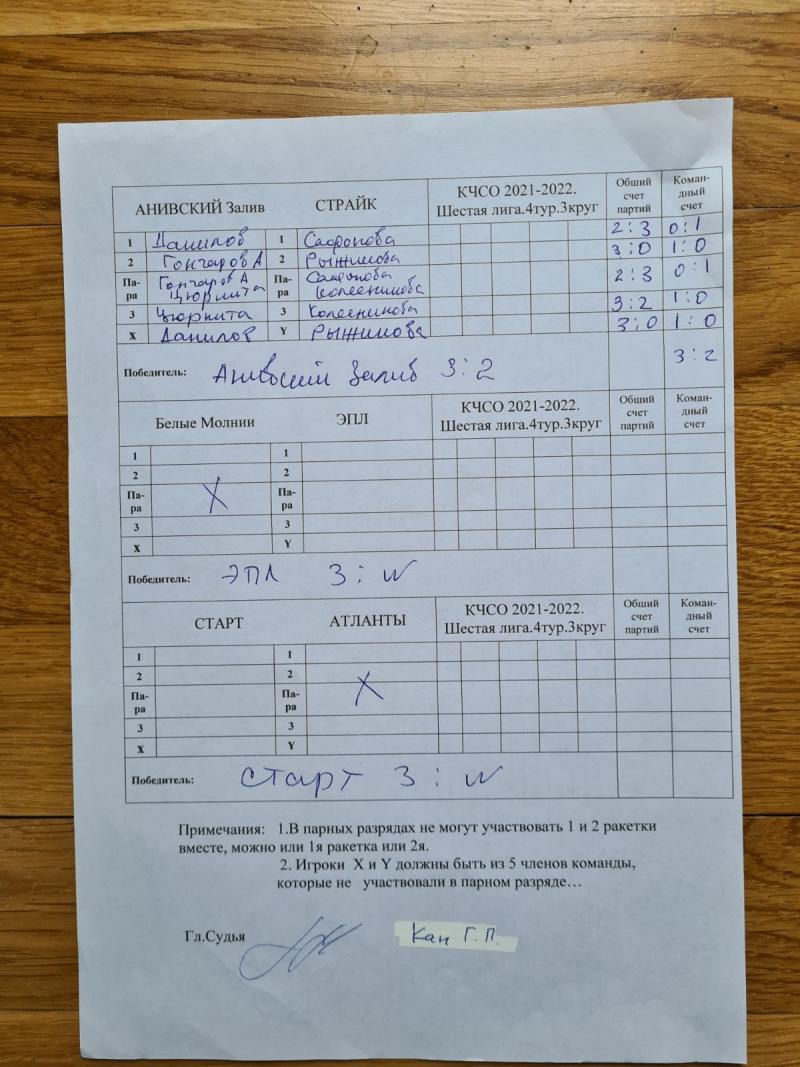 АНИВСКИЙ Залив СТРАЙК КЧСО 2021-2022. Шестая лига.4тур.3круг Общий счет партий Коман-дный счет
1 Данилов 1 Сафронова 2:3 0:1
2 Гончаров А 2 Рыжикова 3:0 1:0
Па-ра Гончаров А Цюрпита Па-ра Сафронова Колесникова 2:3 0:1
3 Цюрпита 3 Колесникова 3:2 1:0
X Данилов Y Рыжикова 3:0 1:0
Победитель: Анивский Залив 3:2 3:2
Белые Молнии ЭПЛ КЧСО 2021-2022. Шестая лига.4тур.3круг Общий счет партий Коман-дный счет
1 1
2 2
Па-ра X Па-ра
3 3
X Y
Победитель: ЭПЛ 3:W
СТАРТ АТЛАНТЫ КЧСО 2021-2022. Шестая лига.4тур.3круг Общий счет партий Коман-дный счет
1 1
2 2
Па-ра Па-ра X
3 3
X Y
Победитель: Старт 3:W
Примечания: 1.В парных разрядах не могут участвовать 1 и 2 ракетки
вместе, можно или 1я ракетка или 2я.
2. Игроки X и Y должны быть из 5 членов команды,
которые не участвовали в парном разряде…
Гл.Судья Кан Г.П.